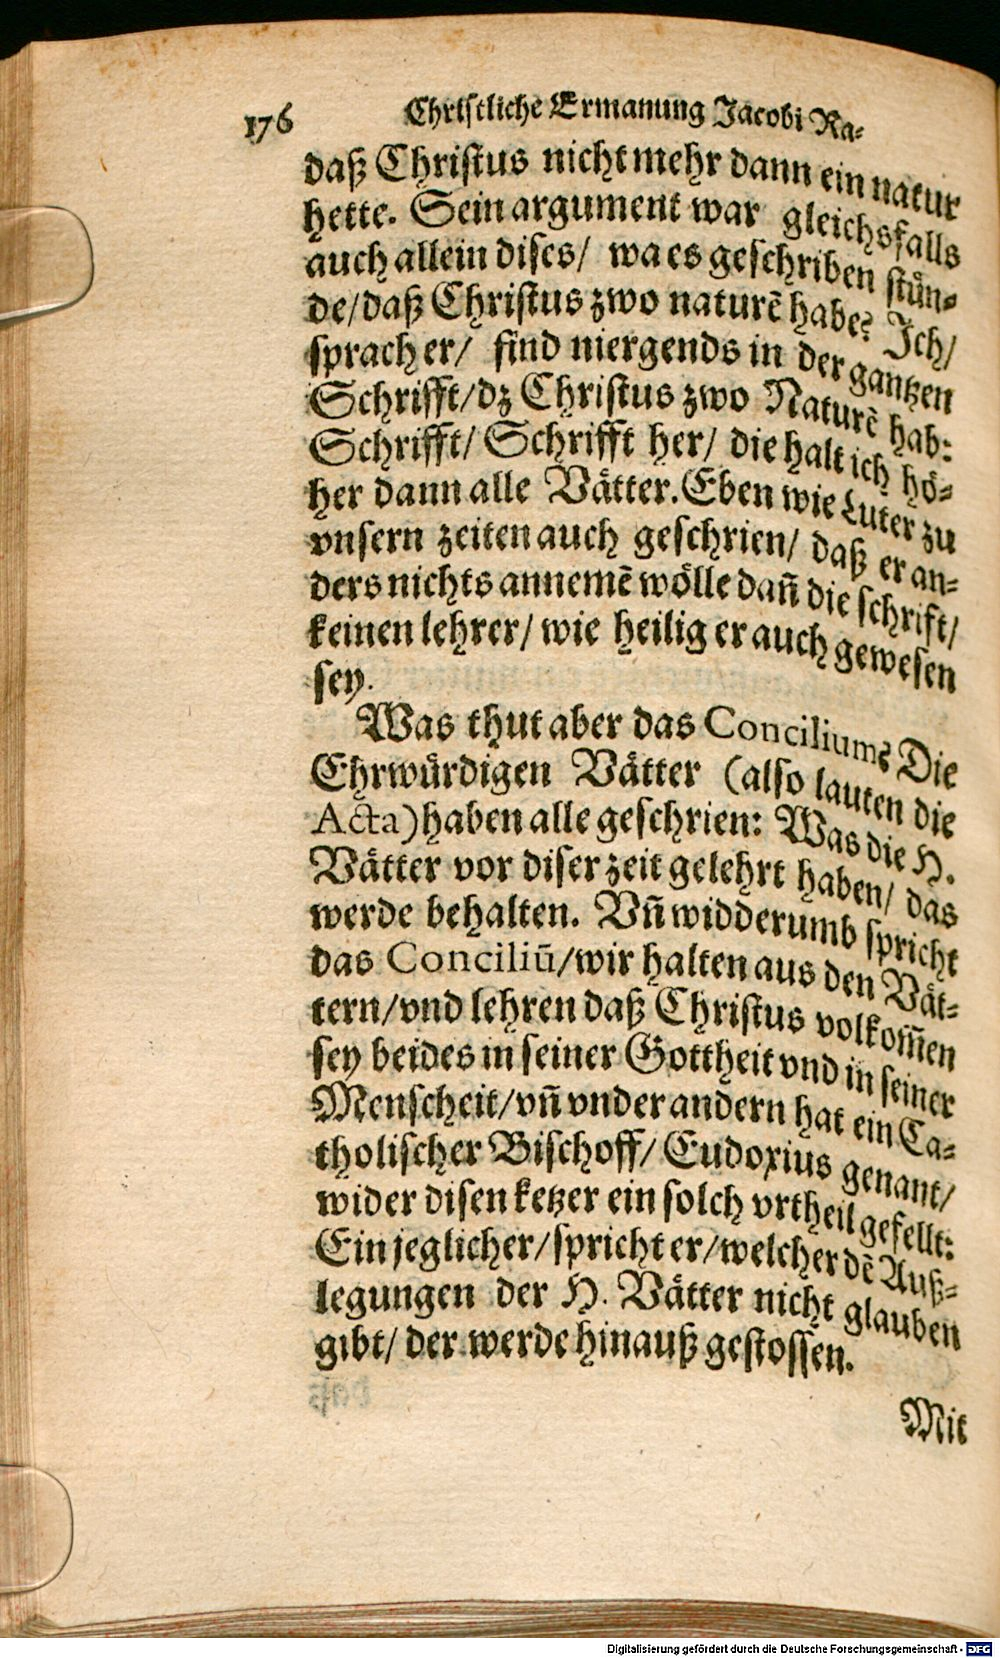 176 Christliche Ermanung Jacobi Ra-
daß Christus nicht mehr dann ein natur
hette. Sein argument war gleichsfalls
auch allein dises/ wa es geschriben stün-
de/ daß Christus zwo naturẽ habe? Ich/
sprach er/ find niergends in der gantzen
Schrifft/ dz Christus zwo Naturẽ hab:
Schrifft/ Schrifft her/ die halt ich hö-
her dann alle Vätter. Eben wie Luter zu
vnsern zeiten auch geschrien/ daß er an-
ders nichts annemẽ wölle dañ die schrift/
keinen lehrer/ wie heilig er auch gewesen
sey.
Was thut aber das Concilium? Die
Ehrwürdigen Vätter (also lauten die
Acta) haben alle geschrien: Was die H.
Vätter vor diser zeit gelehrt haben/ das
werde behalten. Vñ widderumb spricht
das Conciliũ/ wir halten aus den Vät-
tern/ vnd lehren daß Christus volkom̃en
sey beides in seiner Gottheit vnd in seiner
Menscheit/ vñ vnder andern hat ein Ca-
tholischer Bischoff/ Eudoxius genant/
wider disen ketzer ein solch vrtheil gefellt:
Ein jeglicher/ spricht er/ welcher dẽ Auß-
legungen der H. Vätter nicht glauben
gibt/ der werde hinauß gestossen.
Mit
Digitalisierung gefördert durch die Deutsche Forschungsgemeinschaft - DFG